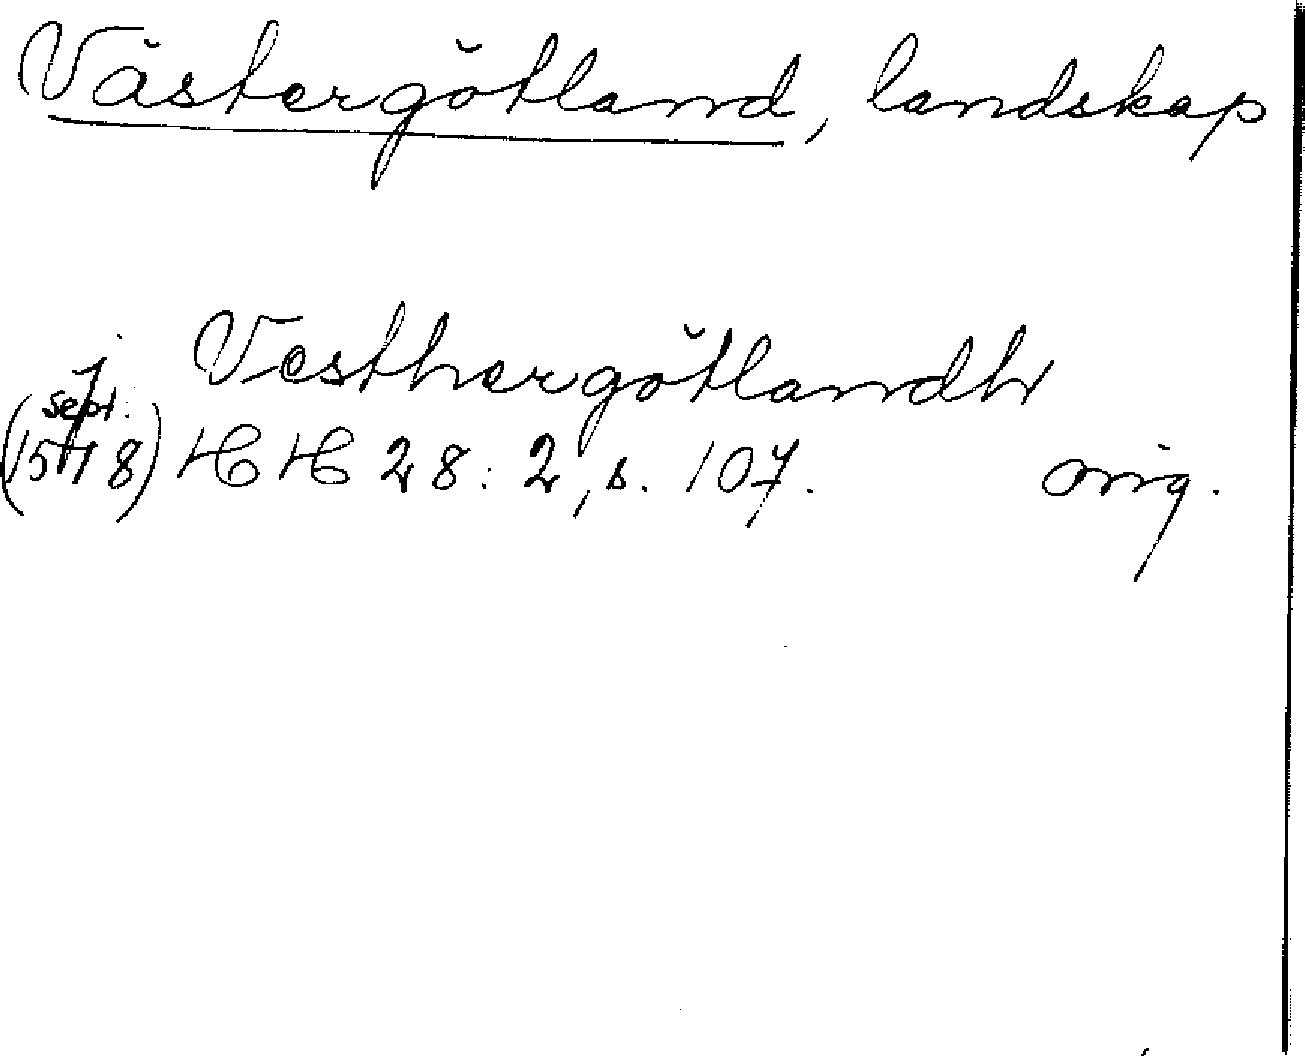 Västergötland, landskap
j Vesthergötlandh
sept.
(1518) HH 28:2, s. 107. orig.